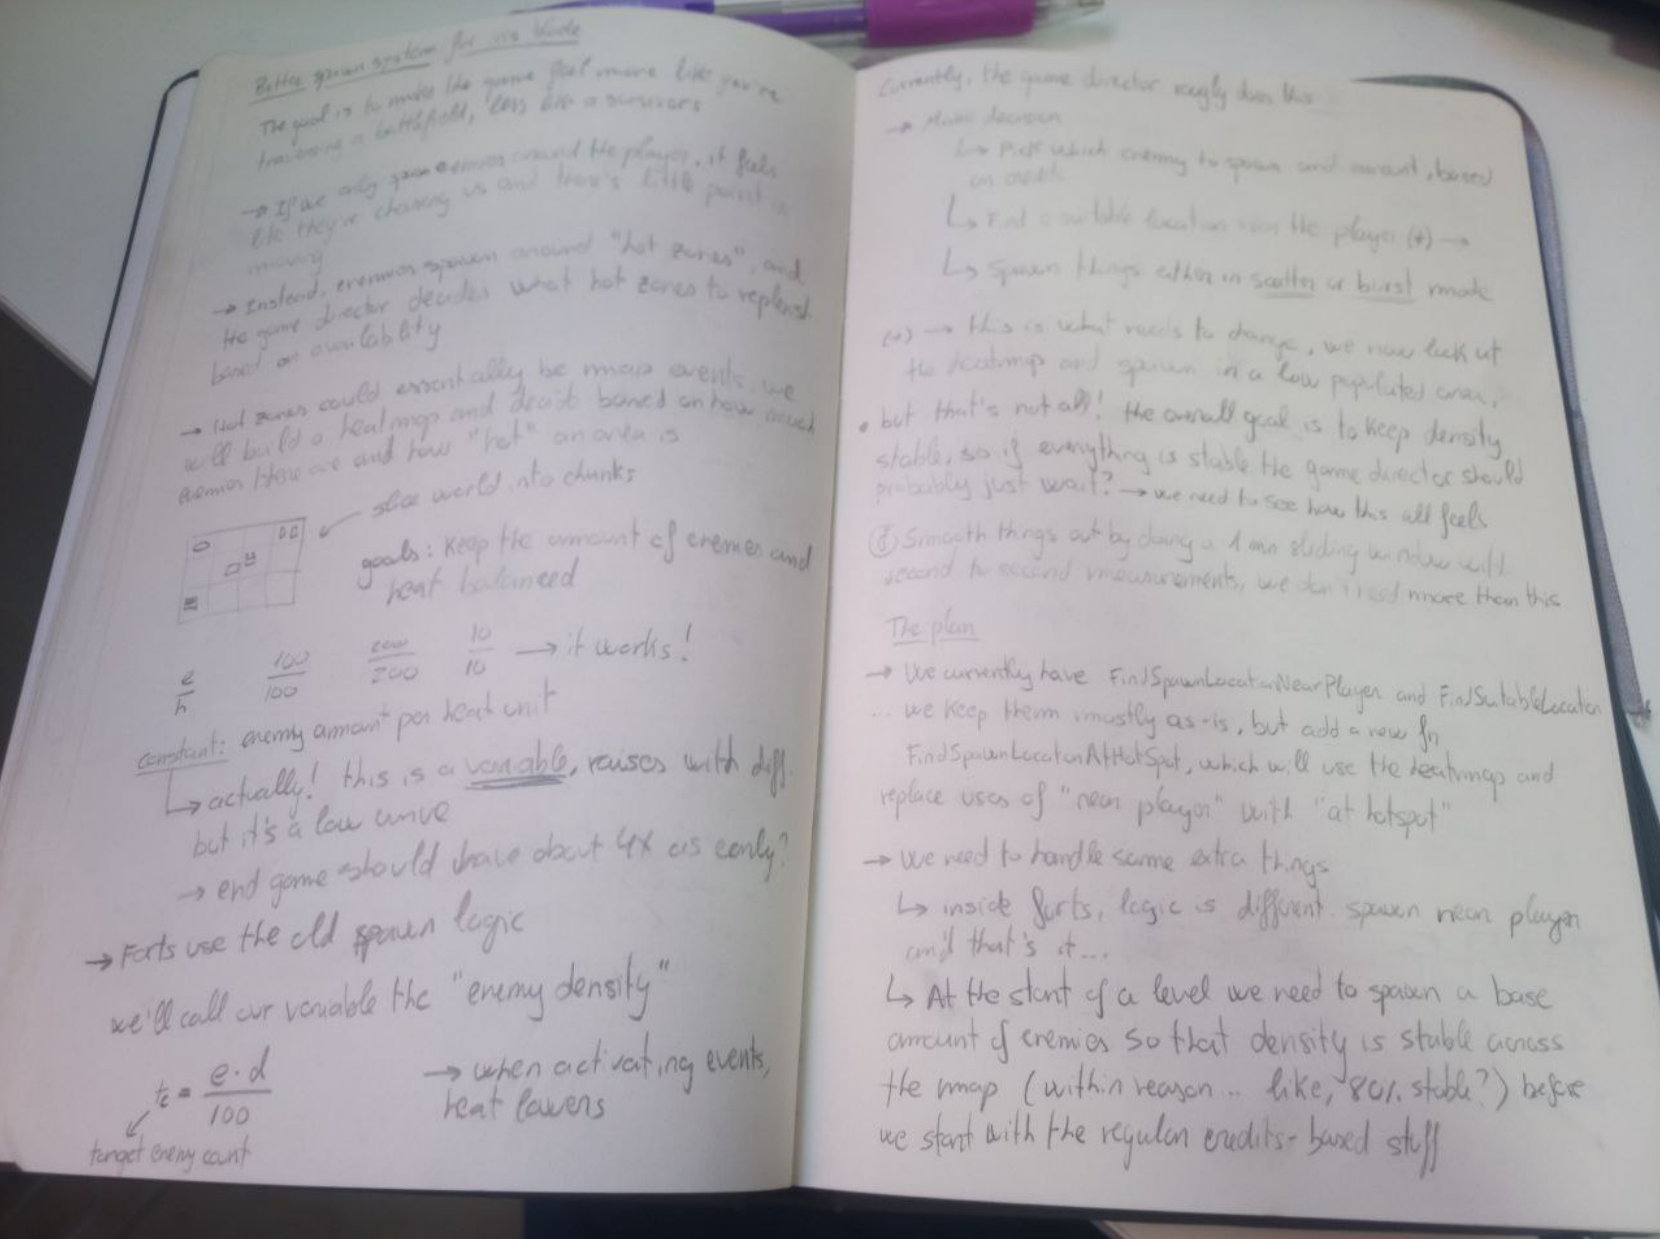 Better spawn system for vis blade
The goal is to make the game feel more like you're
traversing a battlefield, less like a survivors
→ If we only spawn enemies around the player, it feels
like they're chasing us and there's little point in
moving
→ Instead, enemies spawn around "hot zones", and
the game director decides what hot zones to replenish
based on availability
→ Hot zones could essentially be map events, we
will build a heatmap and decide based on how much
enemies there are and how "hot" an area is
slice world into chunks
goals: keep the amount of enemies and
heat balanced
e/h 100/100 200/200 10/10 → it works!
constant: enemy amount per heat unit
↳ actually! this is a variable, raises with diff.
but it's a low curve
→ end game should have about 4x as early?
→ Forts use the old spawn logic
we'll call our variable the "enemy density"
tc = e·d/100
target enemy count
→ when activating events,
heat lowers
Currently, the game director roughly does this
→ Make decision
↳ Pick which enemy to spawn and amount, based
on credits
↳ Find a suitable location near the player (*) →
↳ Spawn things either in scatter or burst mode
(*) → this is what needs to change, we now look at
the heatmap and spawn in a low populated area,
• but that's not all! the overall goal is to keep density
stable, so if everything is stable the game director should
probably just wait? → we need to see how this all feels
Smooth things out by doing a 1 min sliding window with
second to second measurements, we don't need more than this
The plan
→ We currently have FindSpawnLocationNearPlayer and FindSuitableLocation
... we keep them mostly as-is, but add a new fn
FindSpawnLocationAtHotSpot, which will use the heatmap and
replace uses of "near player" with "at hotspot"
→ we need to handle some extra things
↳ inside forts, logic is different. spawn near player
and that's it...
↳ At the start of a level we need to spawn a base
amount of enemies so that density is stable across
the map (within reason... like, 80% stable?) before
we start with the regular credits-based stuff